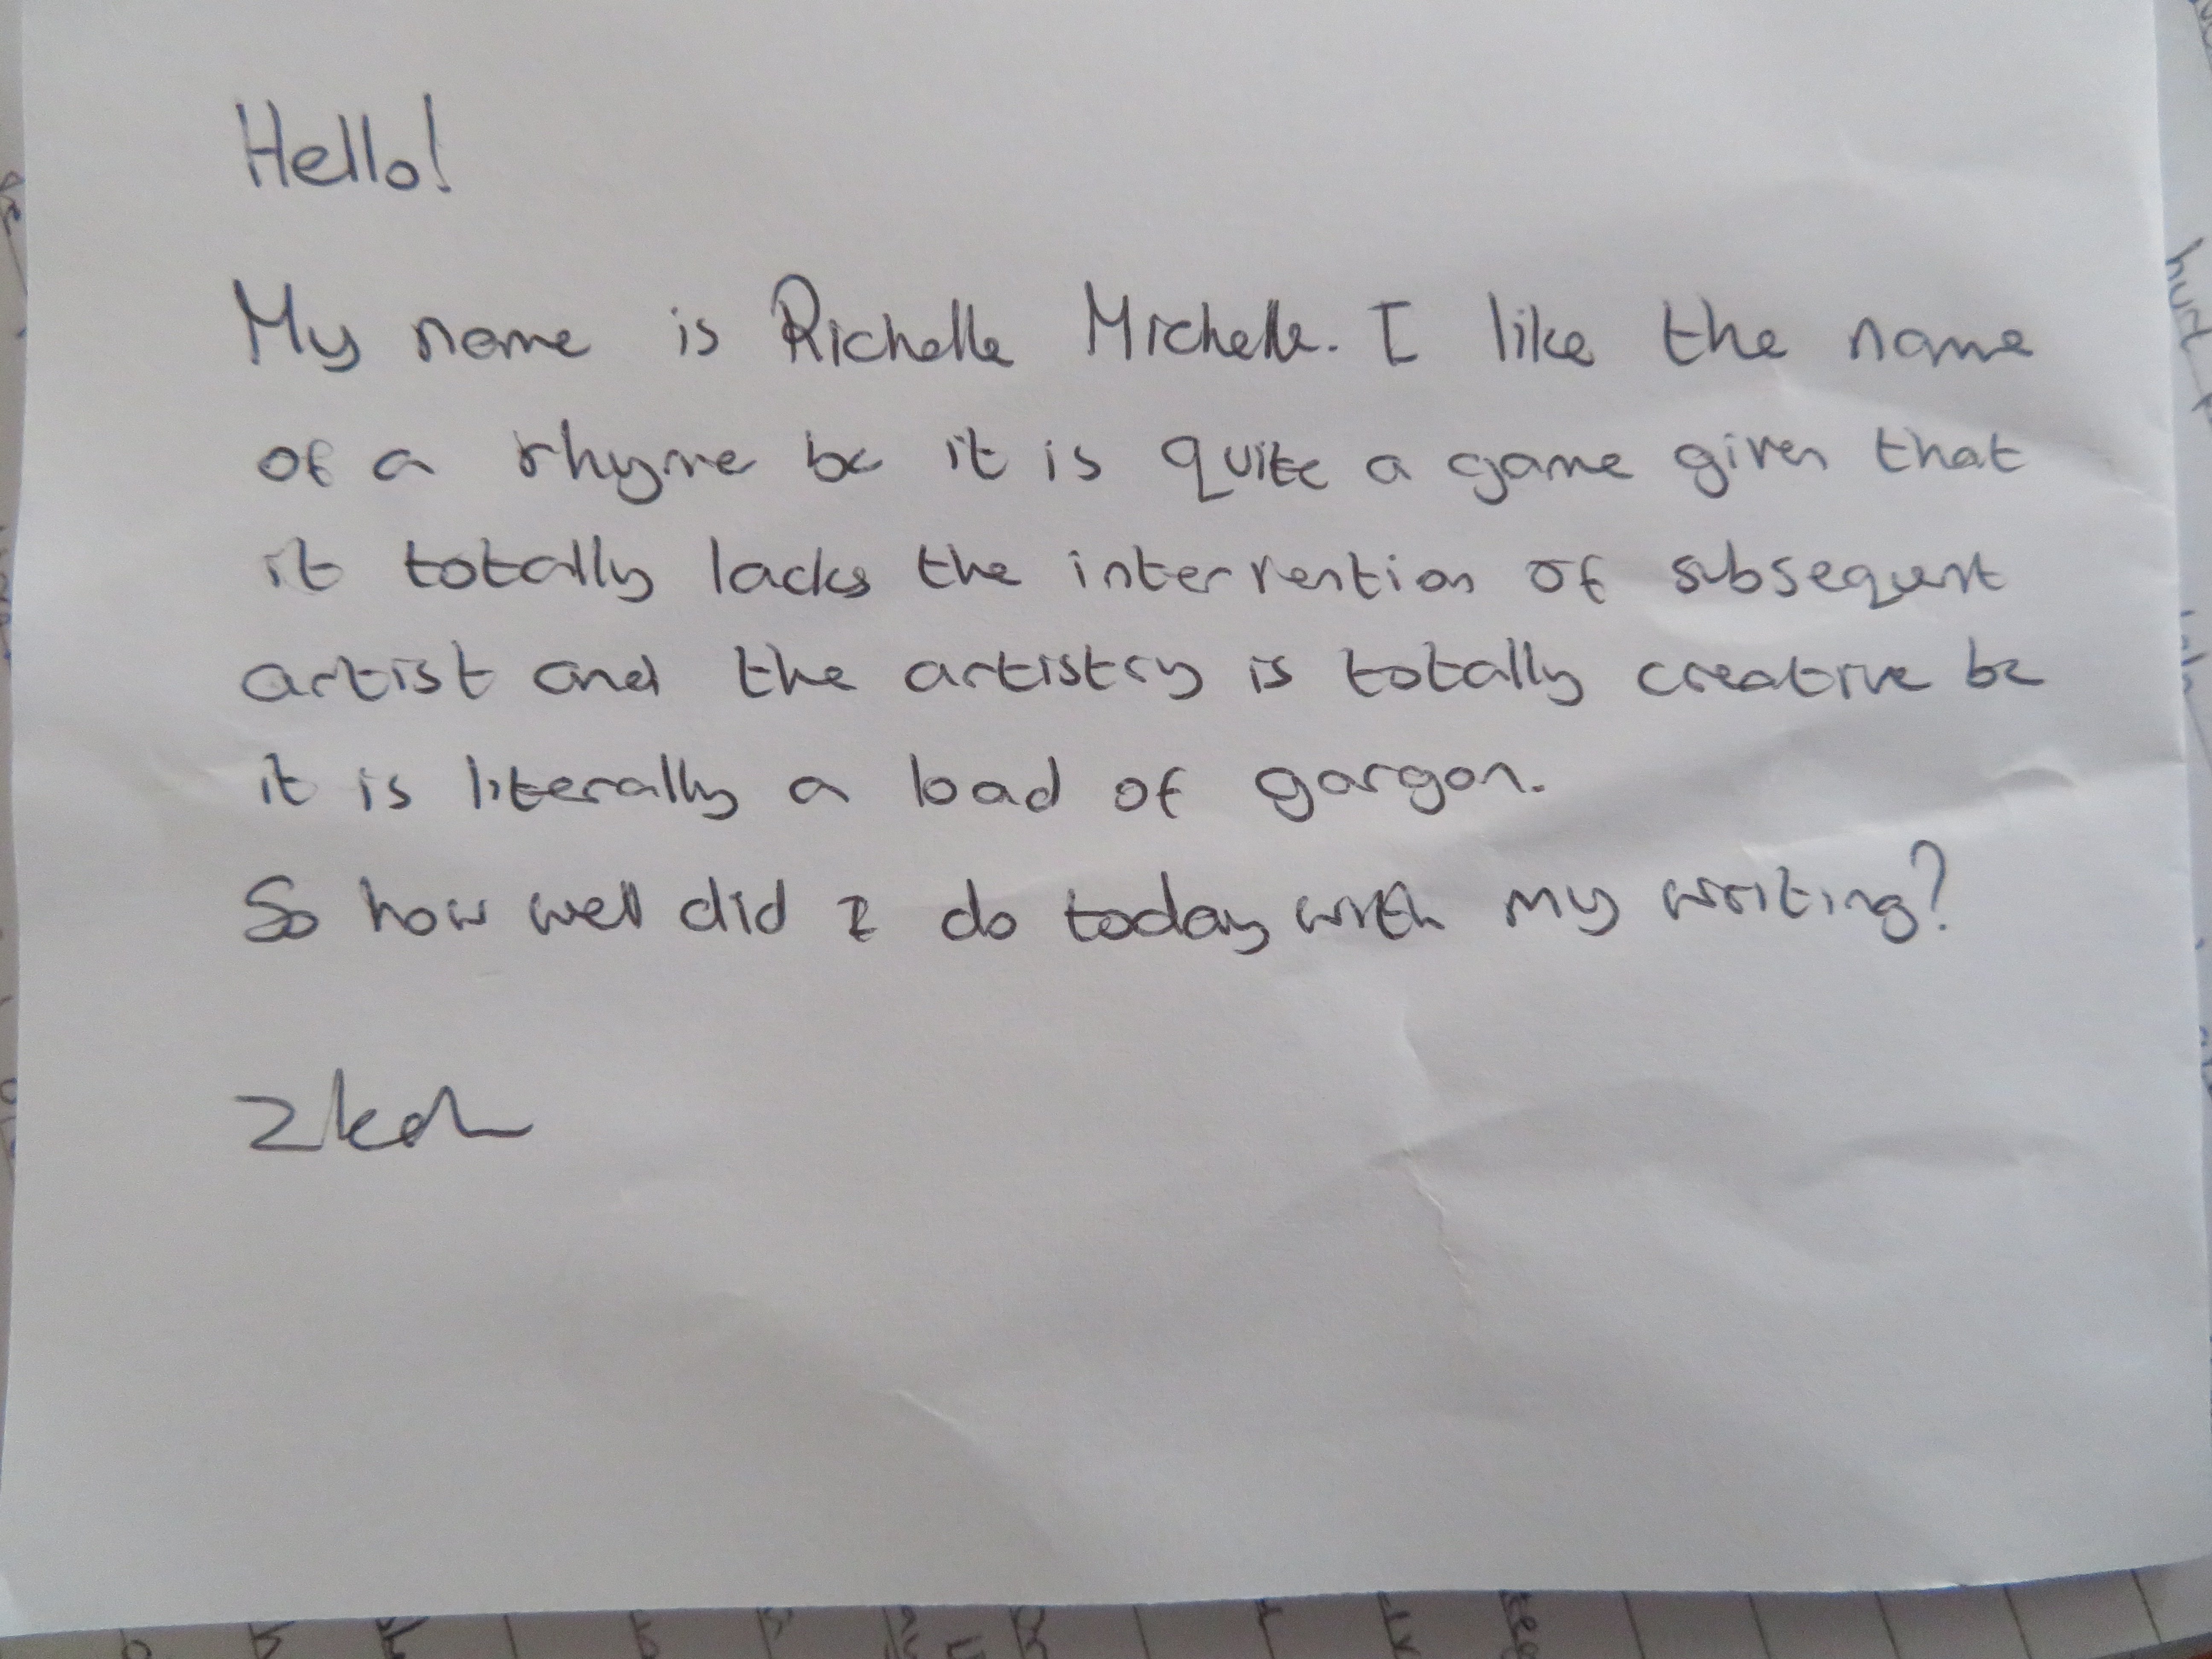 Hello!
My name is Richelle Michelle. I like the name
of a rhyme bc it is quite a game given that
it totally lacks the intervention of subsequent
artist and the artistry is totally creative bc
it is literally a load of gargon.
So how well did I do today with my writing?